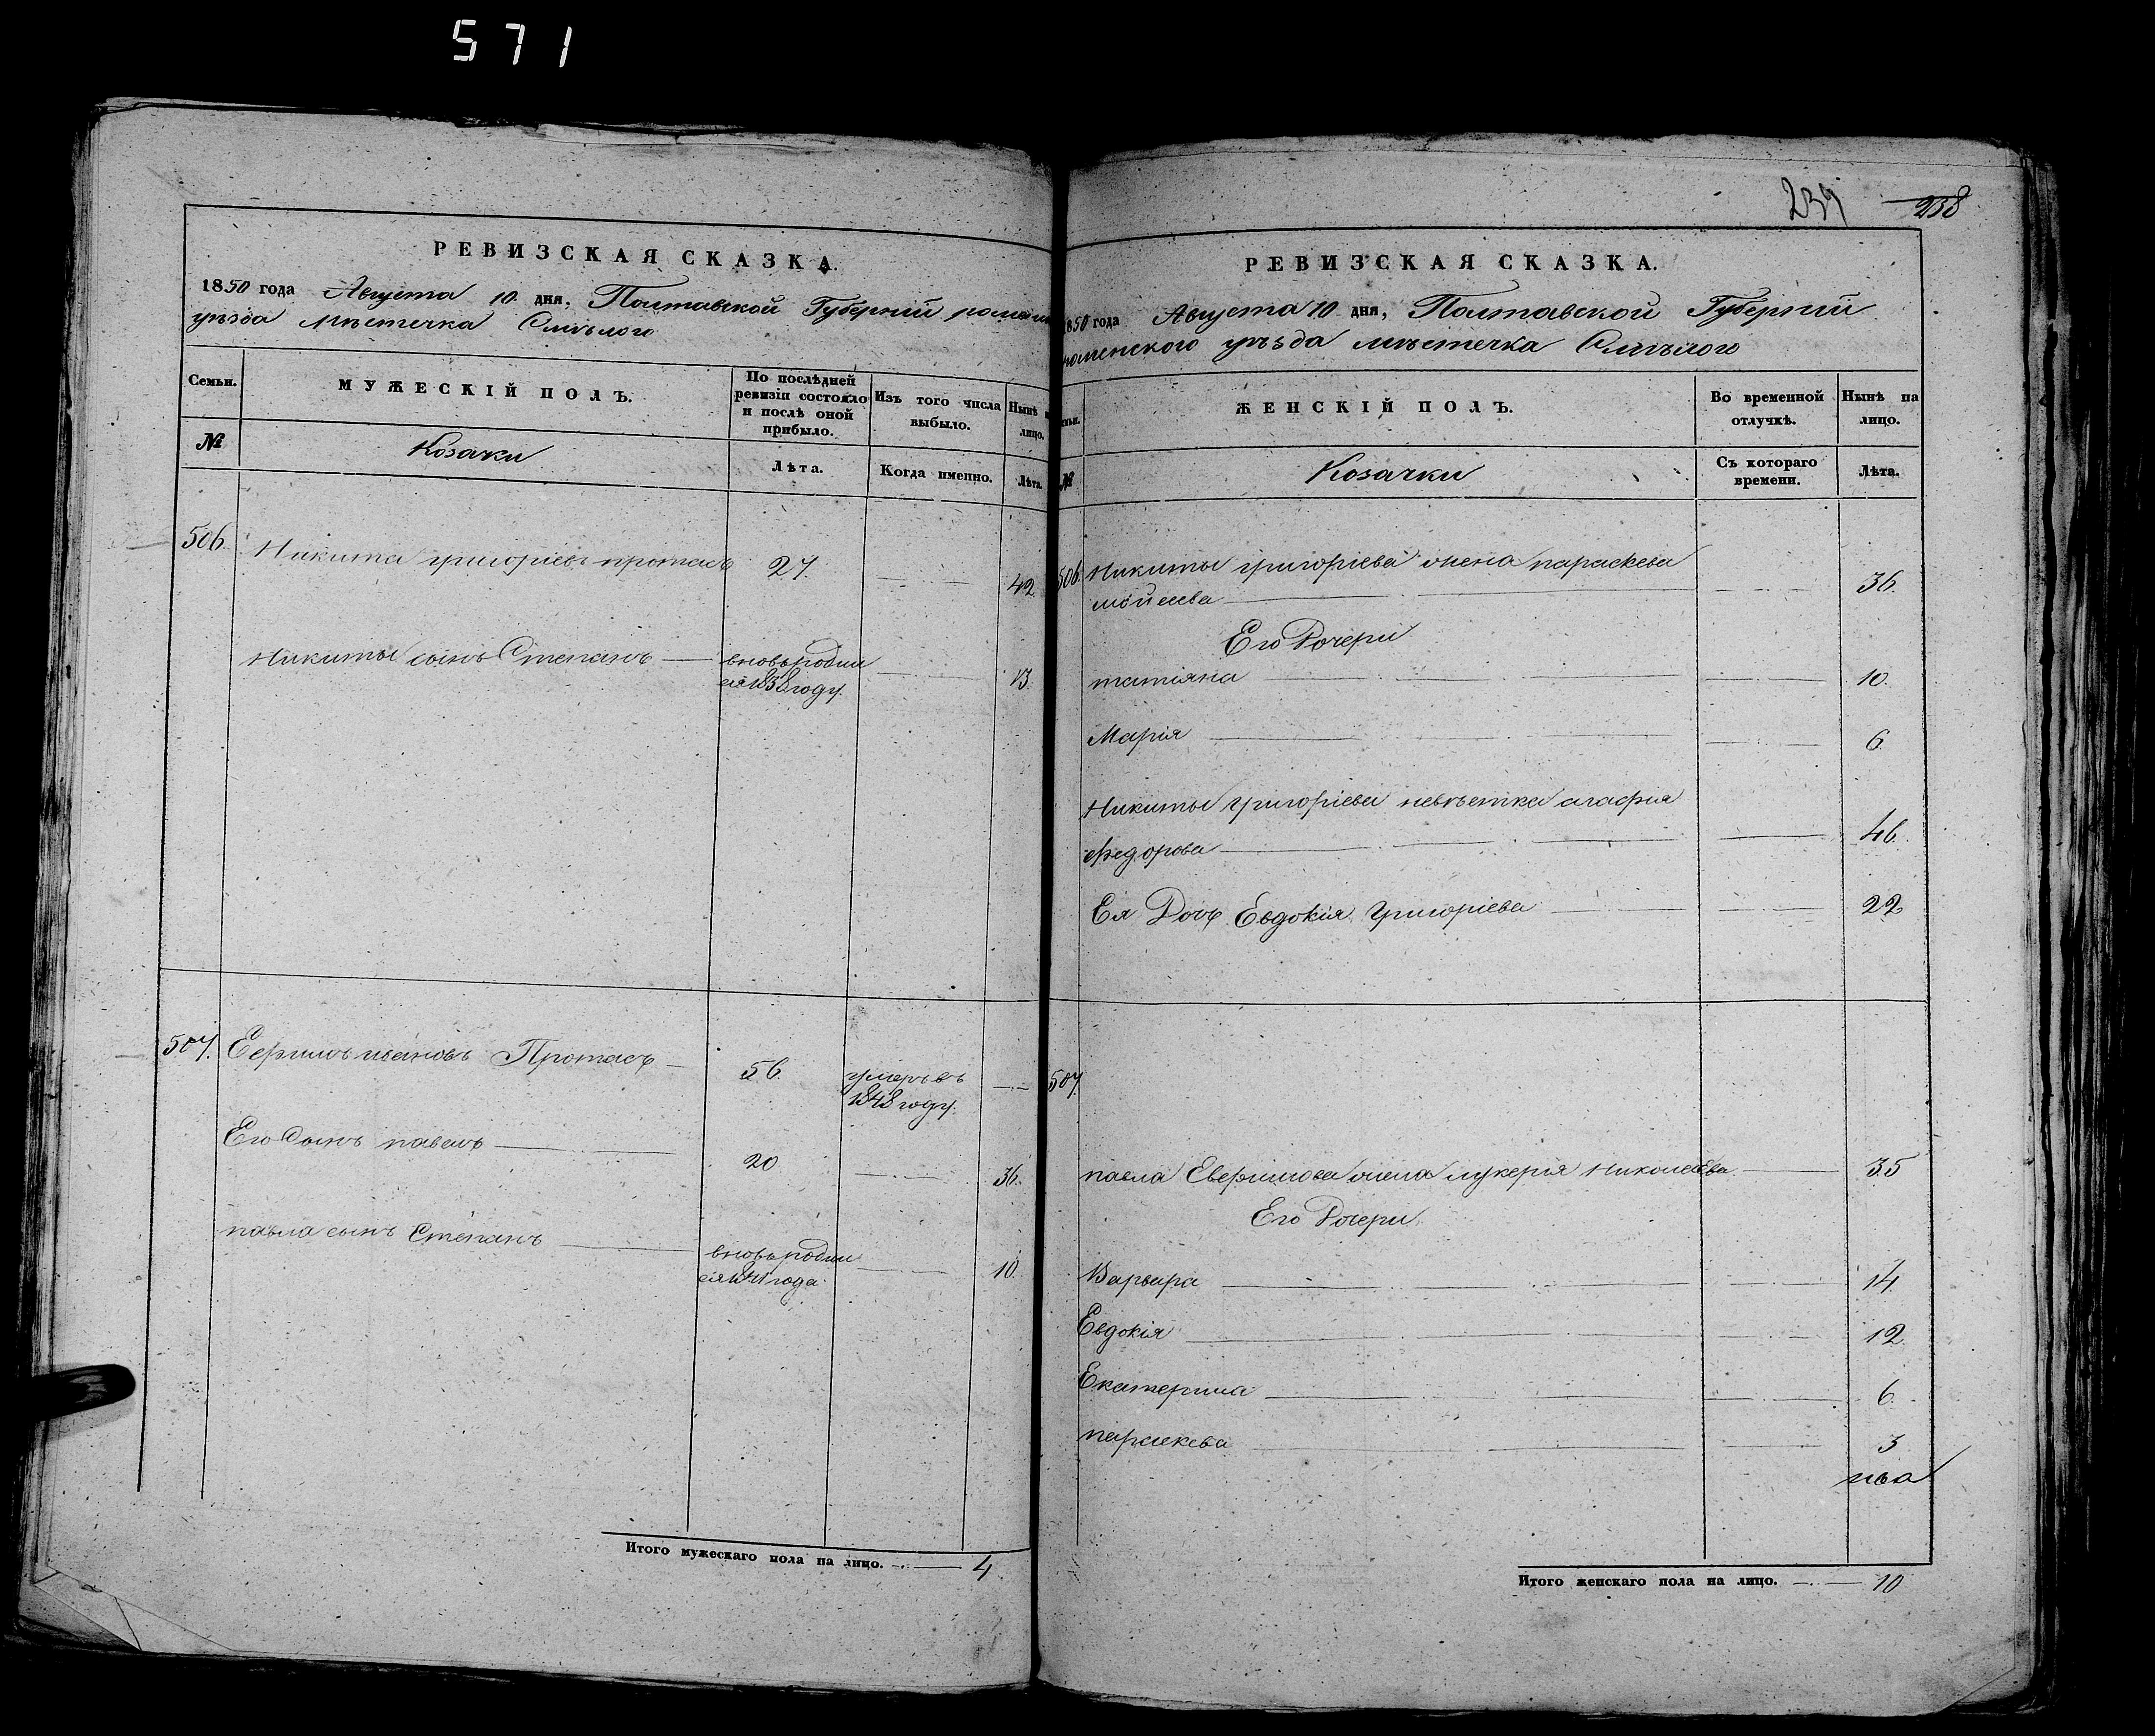 571
РЕВИЗСКАЯ СКАЗКА.
1850 года Августа 10 дня, Полтавской Губерний
уѣзда мѣстечка Смѣлого
Семьи.
МУЖЕСКІЙ ПОЛЪ.
По послѣдней
ревизіи состояло
и послѣ оной
прибыло.
Изъ того числа
выбыло.
Нынѣ
лицо.
№
Козаки
Лѣта.
Когда именно.
Лѣта.
506. Никита григоріевъ протасъ 27. 42.
Никиты сынъ Степанъ вновь родил
ся 1838 году. 13.
507. Ефимъ ивановъ Протасъ 56. умеръ въ
1848 году.
Его Сынъ павелъ 20 36.
павла сынъ Степанъ вновь родил
ся 1841 года. 10.
Итого мужескаго пола на лицо. 4
239 238
РЕВИЗСКАЯ СКАЗКА.
1850 года Августа 10 дня, Полтавской Губерний
роменского уѣзда мѣстечка Смѣлого
ЖЕНСКІЙ ПОЛЪ.
Во временной
отлучкѣ.
Нынѣ на
лицо.
№
Козачки
Съ котораго
времени.
Лѣта.
506. Никиты григоріева жена параскева
мойсеева 36.
Его Дочери
татіяна 10.
Марія 6.
Никиты григоріева невѣстка агафія
федорова 46.
Ея Дочь Евдокія григоріева 22
507.
павла Евфимова жена лукерія Николаева 35
Его Дочери
Варвара 14.
Евдокія 12
Екатерина 6.
параскева 3
Итого женскаго пола на лицо. 10